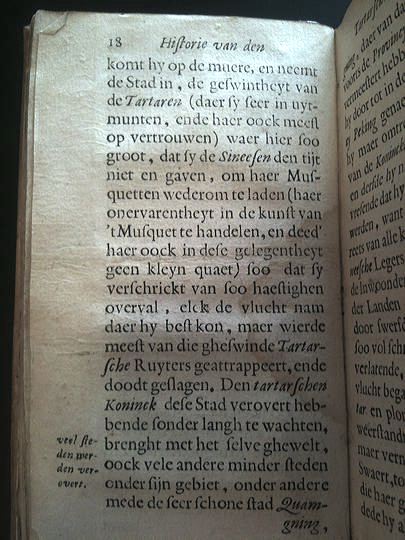 18 Hiſtorie van den
komt hy op de muere, en neemt
de Stad in, de geſwintheyt van
de Tartaren (daer ſy ſeer in uyt-
munten, ende haer oock meeſt
op vertrouwen) waer hier ſoo
groot, dat ſy de Sineeſen den tijt
niet en gaven, om haer Muſ-
quetten wederom te laden (haer
onervarentheyt in de kunſt van
'tMuſquet te handelen, en deed'
haer oock in deſe gelegentheyt
geen kleyn quaet) ſoo dat ſy
verſchrickt van ſoo haeſtighen
overval, elck de vlucht nam
daer hy beſt kon, maer wierde
meeſt van die gheſwinde Tartar-
ſche Ruyters geattrappeert, ende
doodt geſlagen. Den tartarſchen
Koninck deſe Stad verovert heb-
bende ſonder langh te wachten,
brenght met het ſelve ghewelt,
oock vele andere minder ſteden
onder ſijn gebiet, onder andere
mede de ſeer ſchone ſtad Quam-
gning,
veel ſte-
den wer-
den ver-
overt.
Tartarſchen
daer van da
voorts de Provincie
vermeeſtert hebb
hy door tot in de
Peking genae
hy maer omtre
van de Koninck
en derſelve hy n
vreſende dat hy
werden, want
reets van alle k
Legers
de Inwoonder
der Landen
door ſwerf
ſoo vol ſchr
verlatende,
vlucht bega
tar en plon
weerſtandt
maer vern
Swaert, to
die haer g
dede hy a